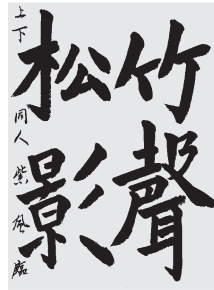 竹聲
松影
上下 同人 紫風臨